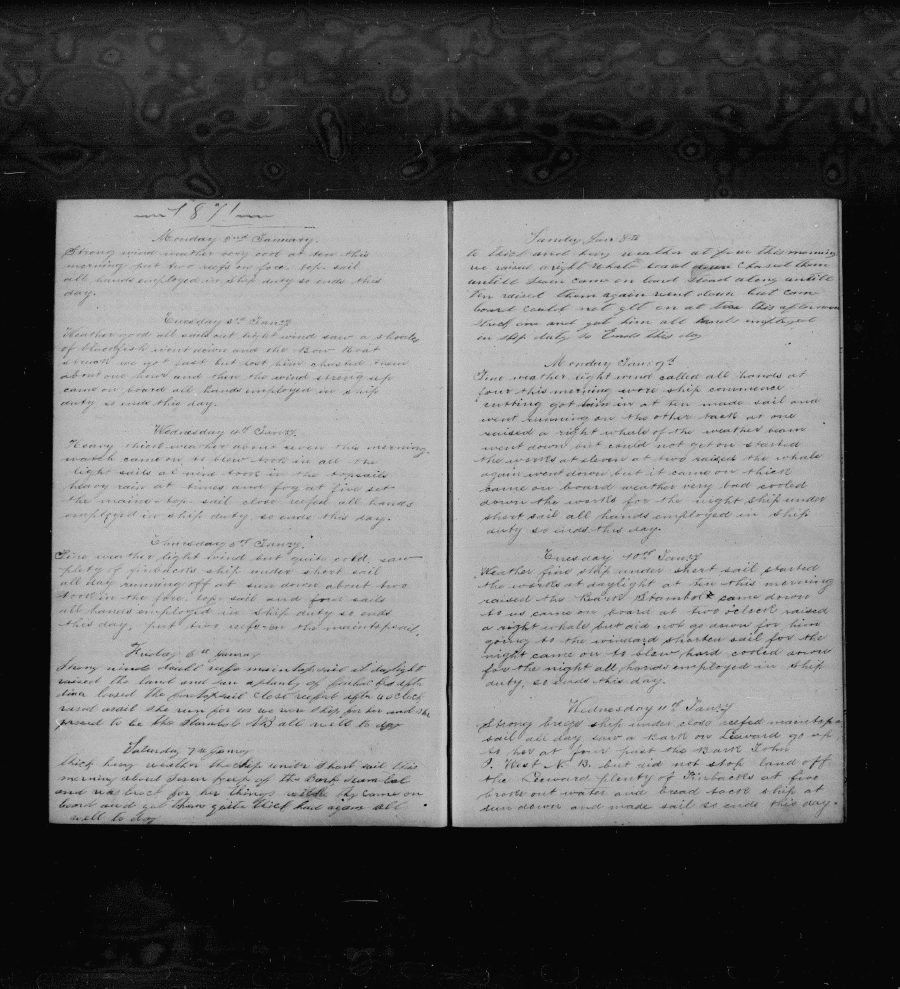 1871
Monday 2nd January.
Strong wind weather very cool at ten this
morning put two reefs in fore top sail
all hands employed in ship duty so ends this
day.
Tuesday 3rd Janry
Weather good all sails out light wind saw a shoal
of blackfish went down and the Bow Boat
struck we got fast but lost him chased them
about one hour and then the wind strong up
came on board all hands employed in ship
duty so ends this day.
Wednesday 4th Janry.
Heavy thick weather about seven this morning
watch came on to blow took in all the
light sails at nine took in the topsails
heavy rain at times and fog at five set
the maine-top-sail close reefed all hands
employed in ship duty so ends this day.
Thursday 5th Janry.
Fine weather light wind but quite cold saw
plety of finbacks ship under short sail
all day running off at sun down about two
took in the fore top sail and four sails
all hands employed in ship duty so ends
this day. put two reefs in the maintopsail.
Friday 6th Janray
Strong winds double reefs maintopsail at daylight
raised the land and a plenty of
loused the foretopsail close reefed aftr 4 o clock
raised a sail she run for us we wore ship for her and she
proved to be the Stambol NB all well to
Saturday 7th Janry
thick hevy weather the ship under short sail this
morning about
and for her things came on
board and got them quite thick had again all
well to day
Sunday Jan 8th
thick and hevy weather at four this morning
we raised a right whale boat down chased them
untill came on bord stood along untill
Ten raised them again went down but cam
board could not get on at two this afternoon
struck one and got him all hands employed
in ship duty So Ends this day
Monday Jany 9th
Fine weather light wind called all hands at
four this morning wore ship commence
cutting got him in at ten made sail and
went running on the other tack at one
raised a right whale of the weather beam
went down but could not get on started
the works at eleven at two raised the whale
again went down but it came on thick
came on board weather very bad cooled
down the works for the night ship under
short sail all hands employed in ship
duty so ends this day.
Tuesday 10th Janry
Weather fine ship under short sail started
the works at daylight at ten this morning
raised the Bark Stambolt came down
to us came on board at two o'clock raised
a right whale but did not go down for him
going to the windard shorten sail for the
night came on to blow hard cooled down
for the night all hands employed in ship
duty, so ends this day.
Wednesday 11th Janry
Strong breze ship under close reefed maintop-
sail all day saw a bark on Leward go up
to her at four past the Bark John
P. West N. B. but did not stop land off
the Leeward plenty of Finbacks at five
broke out water and bread tack ship at
sun down and made sail so ends this day.